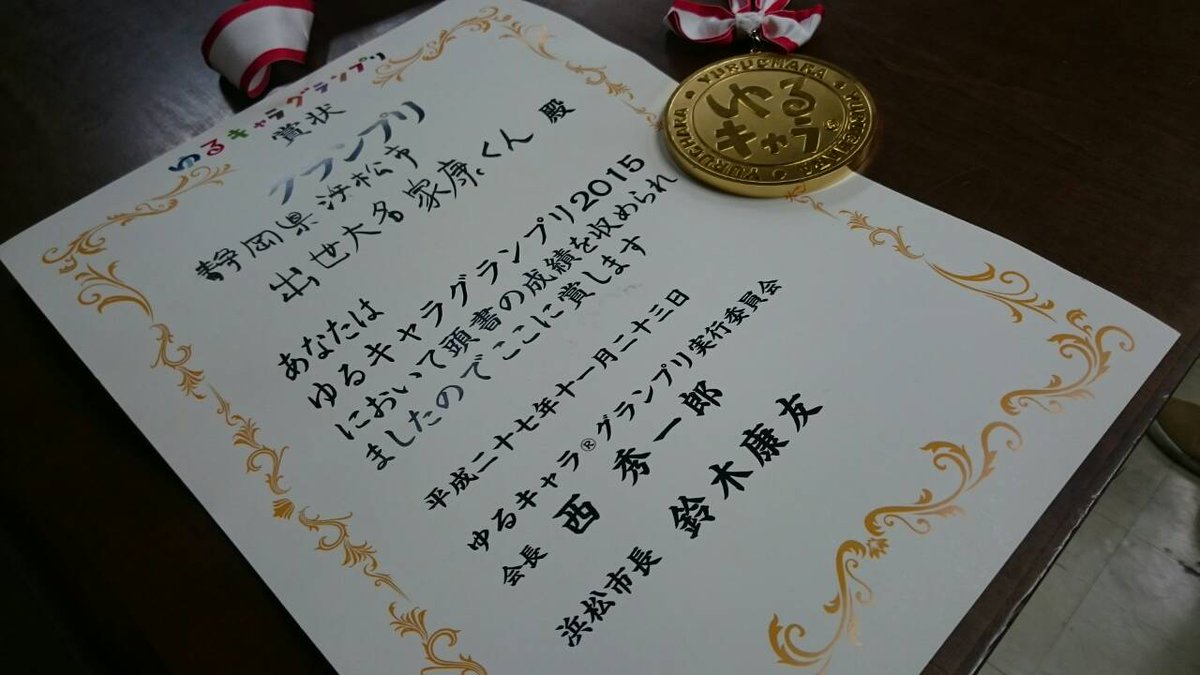 ゆるキャラグランプリ
賞状
グランプリ
静岡県 浜松市
出世大名 家康くん 殿
あなたは
ゆるキャラグランプリ2015
において頭書の成績を収められ
ましたのでここに賞します
平成二十七年十一月二十三日
ゆるキャラ®グランプリ実行委員会
会長 西 秀一郎
浜松市長 鈴木康友
YURUCHARA
ゆる
キャラ®
YURUCHARA
YURUCHARA
YURUCHARA